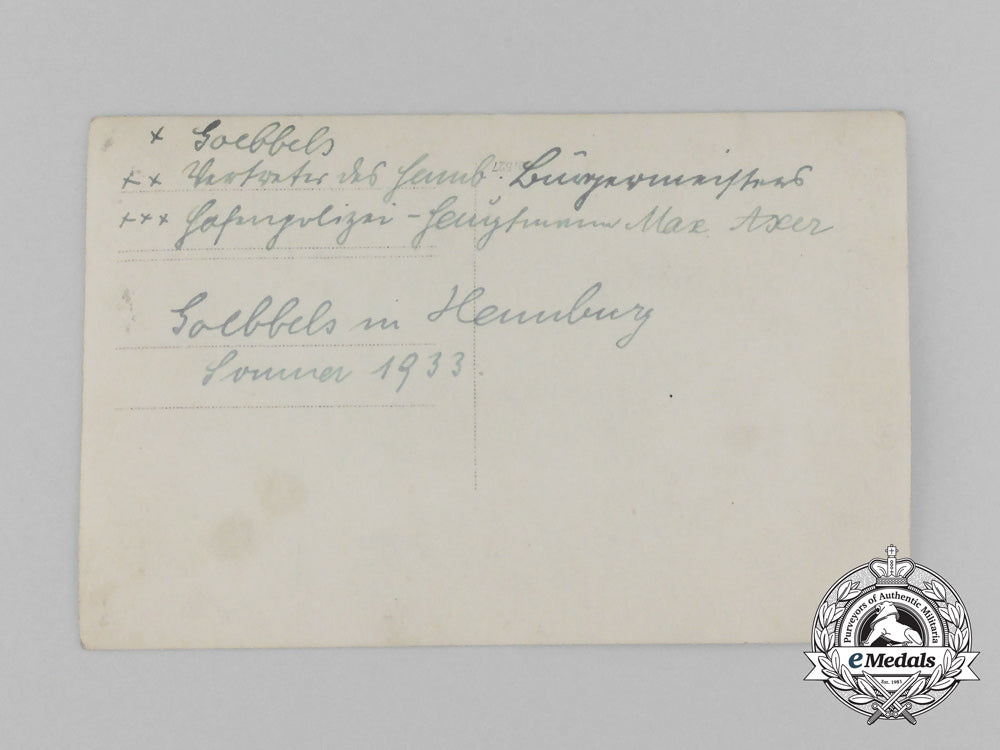 + Goebbels
++ Vertreter des Hamb. Bürgermeisters
+++ Hafenpolizei-Hauptmann Max Axer
Goebbels in Hamburg
Sommer 1933.
Purveyors of Authentic Militaria
eMedals
Est. 1981